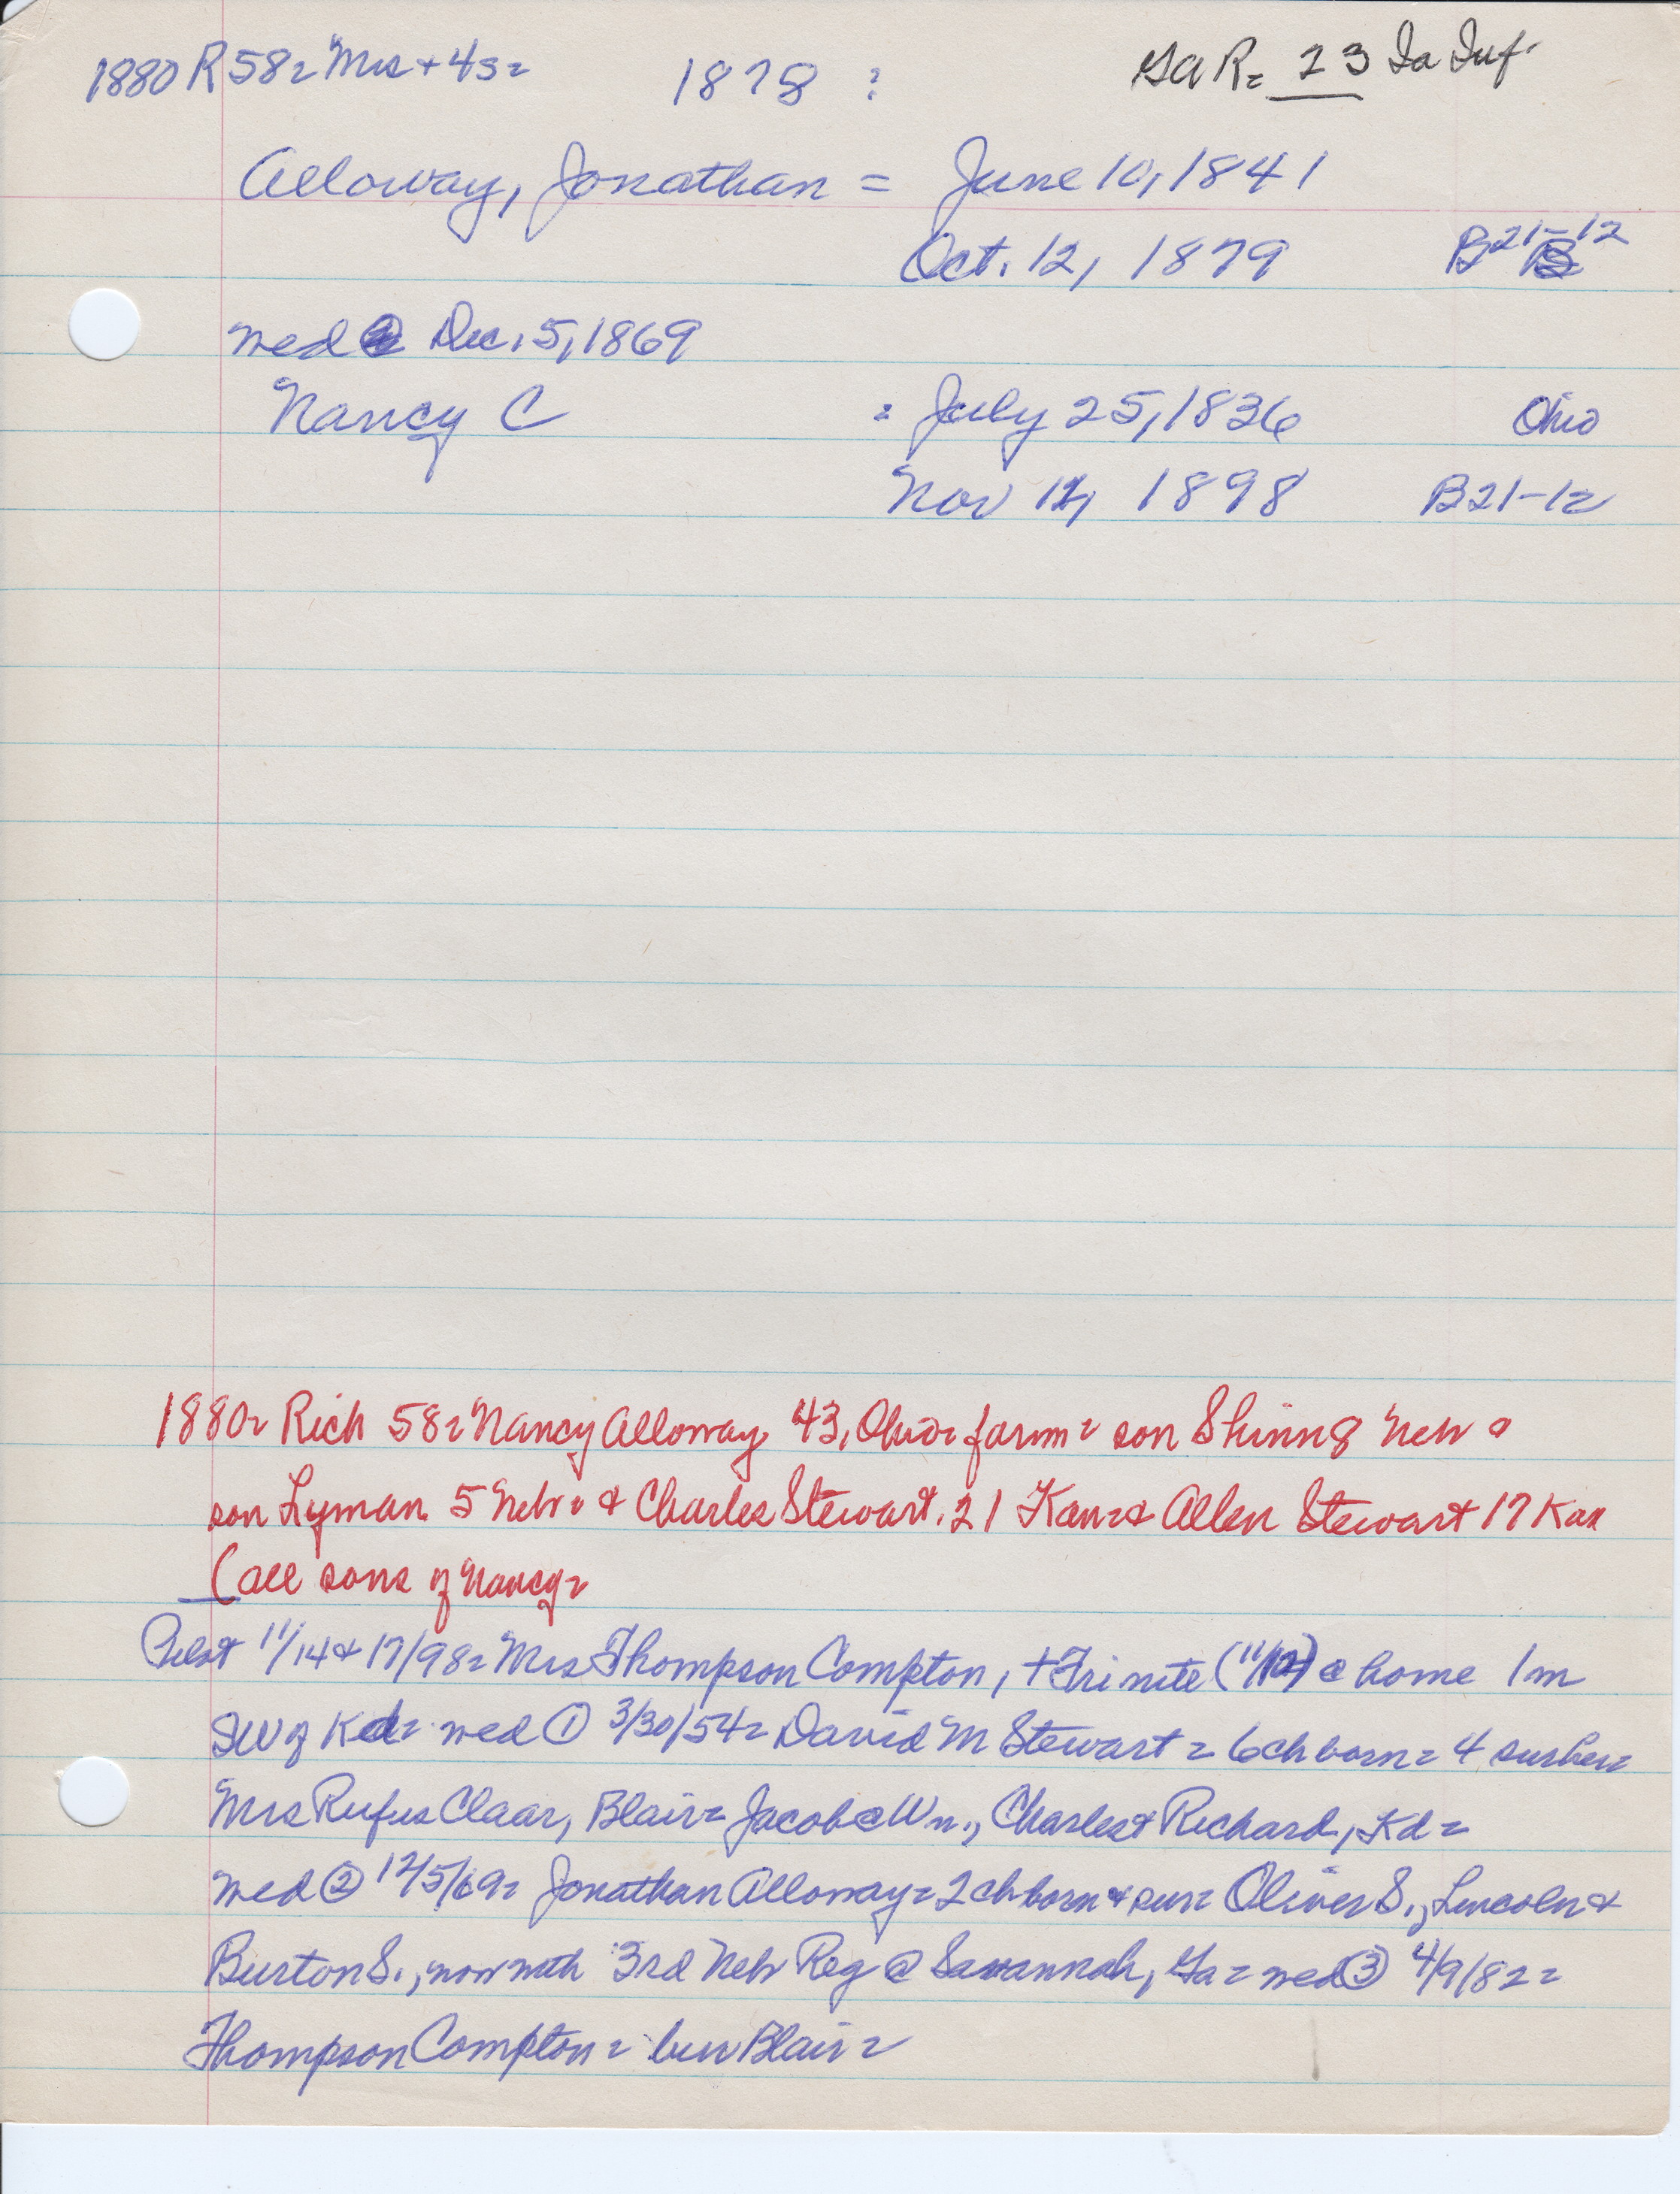 1880 R 58 = Mrs + 4s =
1878 :
GAR = 23 Ia Inf.
Alloway, Jonathan = June 10, 1841
Oct. 12, 1879 B21-12
med Dec. 5, 1869
Nancy C = July 25, 1836 Ohio
Nov 12, 1898 B21-12
1880 = Rich 58 = Nancy Alloway 43, Ohio = farm = son Shinn 8 Neb =
son Lyman 5 Nebr = & Charles Stewart, 21 Kan = & Allen Stewart 17 Kan
(all sons of Nancy =
Pilot 11/14 & 17/98 = Mrs Thompson Compton, + Fri nite (11/12) @ home 1m
SW of Kd = med ① 3/30/54 = David M Stewart = 6 ch born = 4 =
Mrs Rufus Claar, Blair = Jacob @ Wn., Charles & Richard, Kd =
med ② 12/5/69 = Jonathan Alloway = 2 ch born & sur = Oliver S., Lincoln &
Burton S., now with 3rd Neb Reg @ Savannah, Ga = med ③ 4/9/82 =
Thompson Compton = bur Blair =